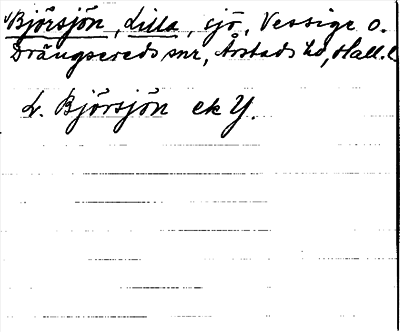 Björsjön, Lilla, sjö, Vessige o.
Drängsereds snr, Årstads hd, Hall. l.
L. Björsjön ek Y.